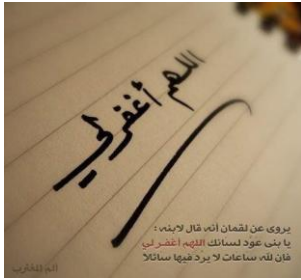 اللهم أغفر لي
يروى عن لقمان أنه قال لابنه :
يا بنى عود لسانك اللهم أغفر لي
فإن لله ساعات لا يرد فيها سائلاً
ألم المغارب